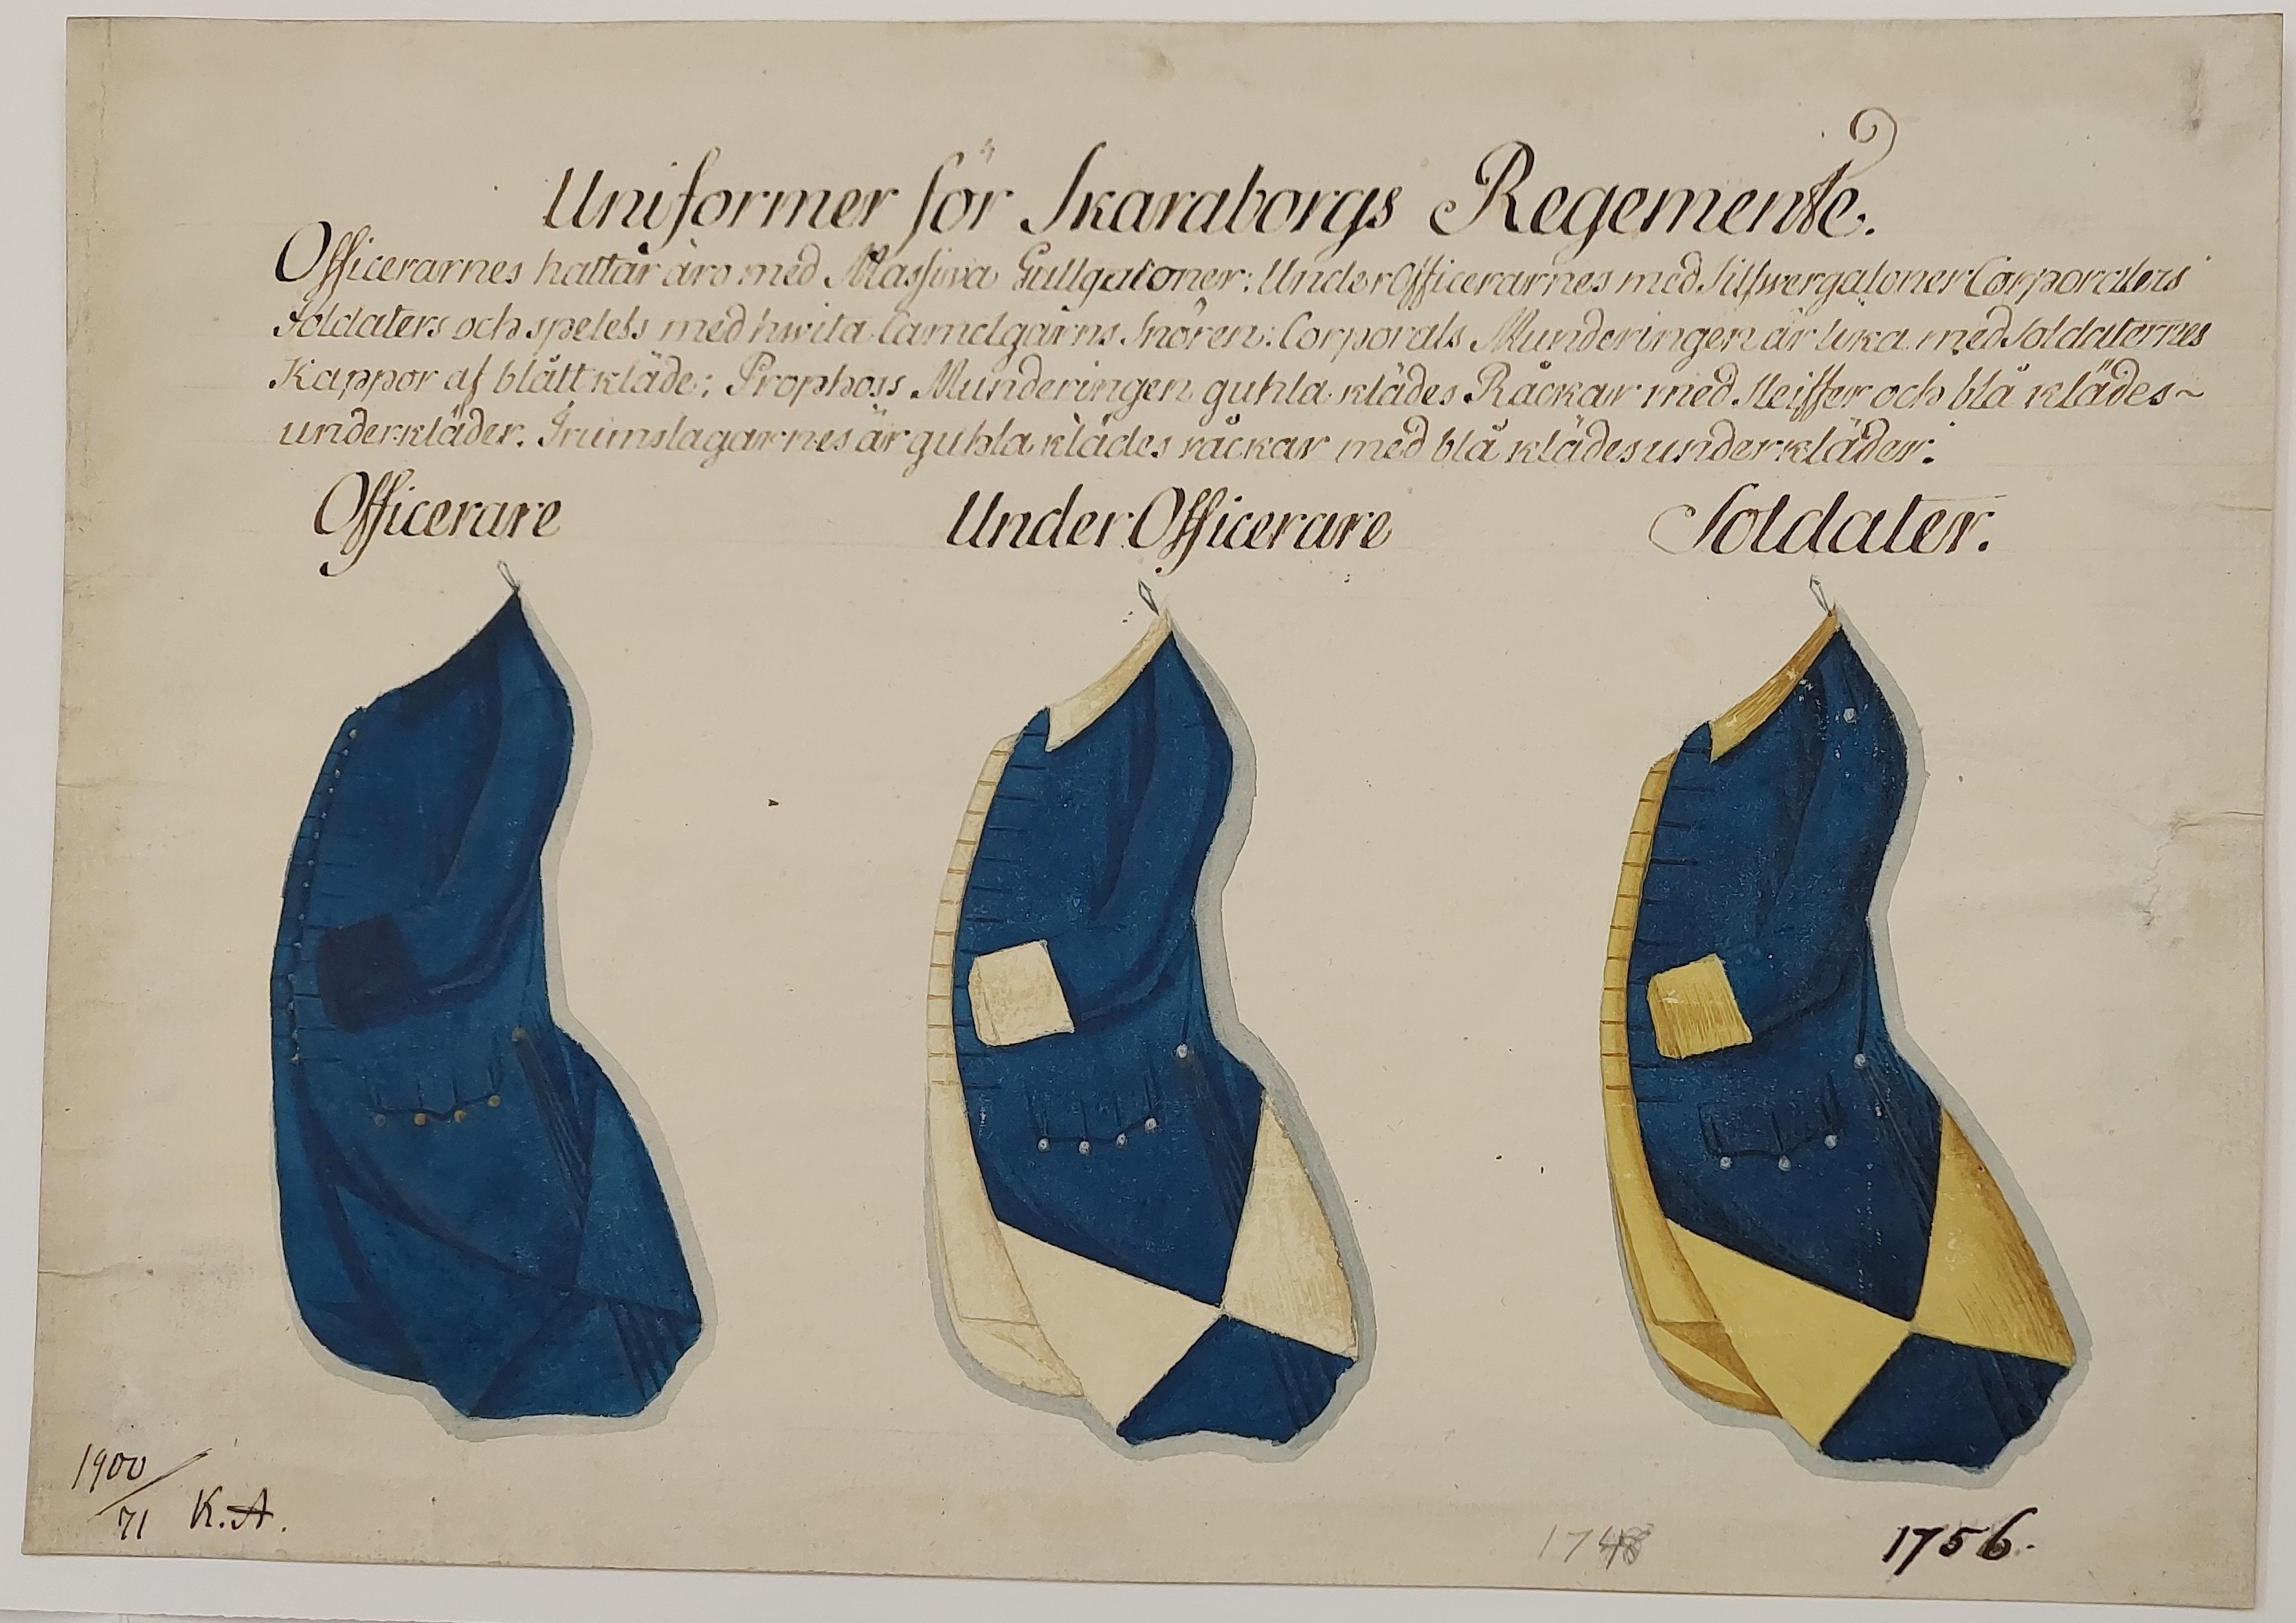 Uniformer för Skaraborgs Regemente.
Officerarnes hattar äro med Massiva Gullgaloner: UnderOfficerarnes med Silfwergaloner Corporalers
Soldaters och spelels med hwita Camelgarns Snören: Corporals Munderingen är lika med Soldaternes
Kappor af blått kläde; Prophoss Munderingen guhla klädes Råckar med Sleiffer och blå klädes~
underkläder. Trumslagarnes är guhla klädes råckar med blå klädes underkläder:
Officerare
Under Officerare
Soldater.
1900/71 K.A.
1748
1756.